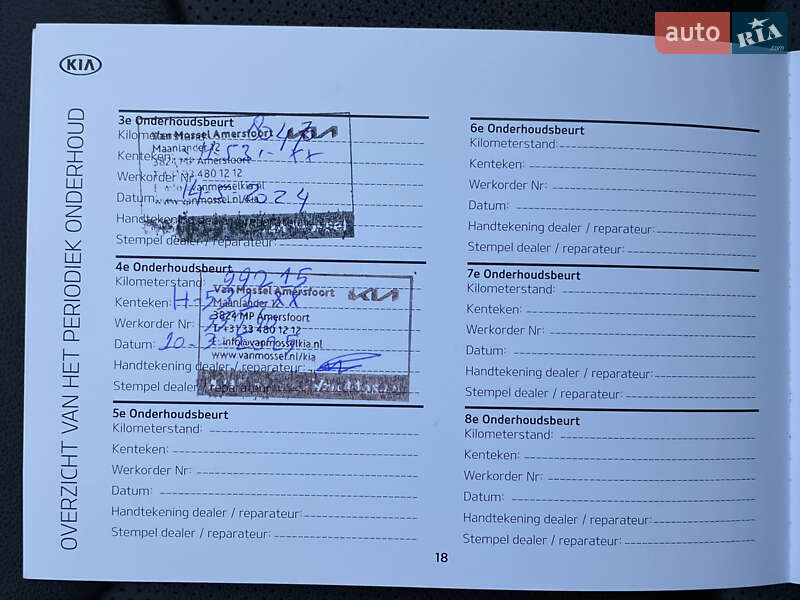 auto RIA.com
KIA
OVERZICHT VAN HET PERIODIEK ONDERHOUD
3e Onderhoudsbeurt
Kilometerstand:
Van Mossel Amersfoort KIA
Maanlander 12
Kenteken:
3824 MP Amersfoort
Werkorder Nr:
33 480 12 12
vanmosselkia.nl
Datum: 2024
www.vanmossel.nl/kia
Handtekening dealer / reparateur:
Stempel dealer / reparateur:
4e Onderhoudsbeurt
Kilometerstand: 99215
Van Mossel Amersfoort KIA
Kenteken: H-5
Maanlander
3824 MP Amersfoort
Werkorder Nr:
T +31 33 480 12 12
Datum: 10-3
info@vanmosselkia.nl
www.vanmossel.nl/kia
Handtekening dealer / reparateur:
Stempel dealer / reparateur:
5e Onderhoudsbeurt
Kilometerstand:
Kenteken:
Werkorder Nr:
Datum:
Handtekening dealer / reparateur:
Stempel dealer / reparateur:
6e Onderhoudsbeurt
Kilometerstand:
Kenteken:
Werkorder Nr:
Datum:
Handtekening dealer / reparateur:
Stempel dealer / reparateur:
7e Onderhoudsbeurt
Kilometerstand:
Kenteken:
Werkorder Nr:
Datum:
Handtekening dealer / reparateur:
Stempel dealer / reparateur:
8e Onderhoudsbeurt
Kilometerstand:
Kenteken:
Werkorder Nr:
Datum:
Handtekening dealer / reparateur:
Stempel dealer / reparateur:
18